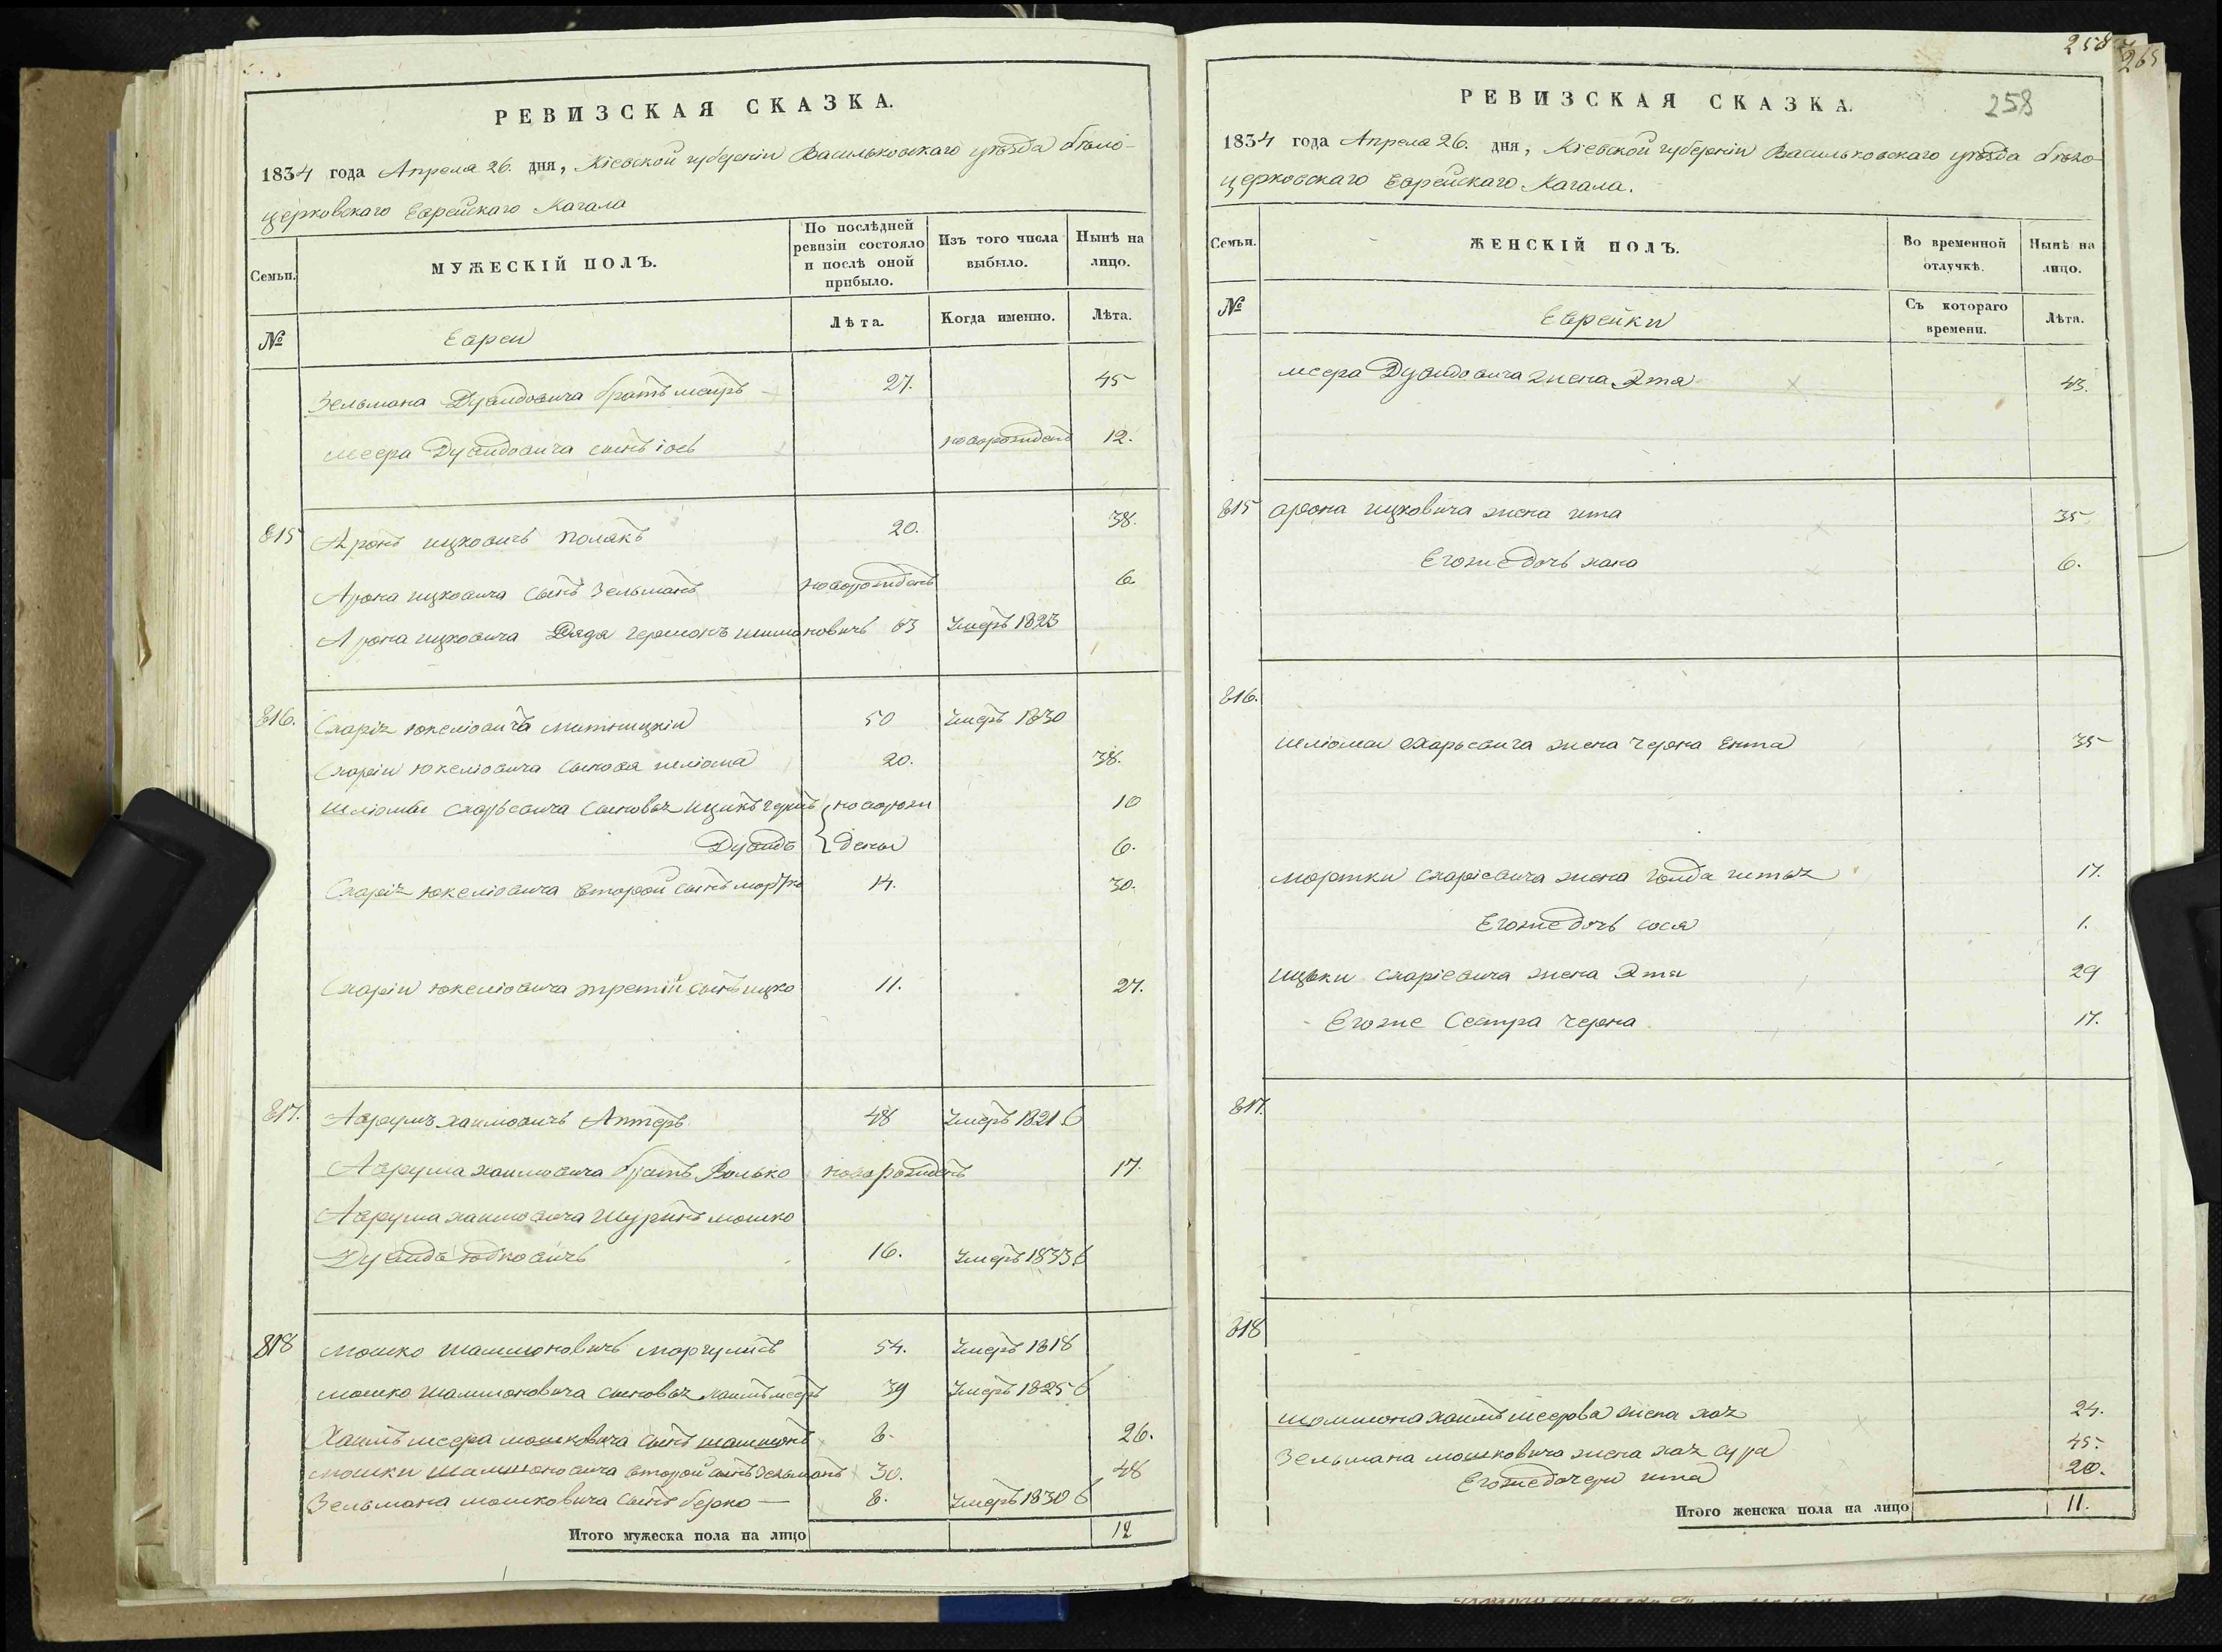 РЕВИЗСКАЯ СКАЗКА.
1834 года Апреля 26. дня, Кіевской губерніи Васильковскаго уѣзда бѣло-
церковскаго Еврейскаго Кагала
Семьи. МУЖЕСКІЙ ПОЛЪ. По послѣдней ревизіи состояло и послѣ оной прибыло. Изъ того числа выбыло. Нынѣ на лицо.
№ Евреи Лѣта. Когда именно. Лѣта.
Зельмана Дувидовича братъ меиръ 27. 45
меера Дувидовича сынъ іось новорожденъ 12.
815 Аронъ ицковичь Полякъ 20. 38.
Арона ицковича сынъ Зельманъ новорожденъ 6
Арона ицковича Дядя гершонъ шимоновичь 63 умеръ 1823
816. Схаріѣ юкеліовичъ митницкіи 50 умеръ 1830
Схаріи юкеліовича сыновя шліома 20. 38.
шліомы схарьевича сыновья ицикъ новорож 10
Дувидъ дены 6.
Схаріѣ юкеліовича второй сынъ мортко 14. 30.
Схаріи юкеліовича третій сынъ ицко 11. 27.
817. Аврумъ хаимовичь Аптеръ 48 умеръ 1821
Аврума хаимовича братъ Волько новорожденъ 17.
Аврума хаимовича Шуринъ мошко
Дувидъ юдковичь 16. умеръ 1833
818 мошко шаммоновичь моргулисъ 54. умеръ 1818
мошко шаммоновича сыновья хаимъ мееръ 39 умеръ 1825
Хаимъ меера мошковича сынъ шаммонъ 8. 26.
мошки шаммоновича второй сынъ зельманъ 30. 48
Зельмана мошковича сынъ берко — 8. умеръ 1830
Итого мужеска пола на лицо 12
258 265
РЕВИЗСКАЯ СКАЗКА. 258
1834 года Апреля 26. дня, Кіевской губерніи Васильковскаго уѣзда бѣло-
церковскаго Еврейскаго Кагала.
Семьи. ЖЕНСКІЙ ПОЛЪ. Во временной отлучкѣ. Нынѣ на лицо.
№ Еврейки Съ котораго времени. Лѣта.
меера Дувидовича жена Эта 43.
815 арона ицковича жена ита 35
Егоже дочь хана 6.
816.
шліомы схарьевича жена черна Ента 35
мортки схаріевича жена голда 17.
Егоже дочь сося 1.
ицьки схаріевича жена Эта 29
Егоже Сестра черна 17.
817.
818
шоммона хаимъ меерова жена хая 24.
Зельмана мошковича жена хая сура 45.
Егоже дочери ита 20.
Итого женска пола на лицо 11.